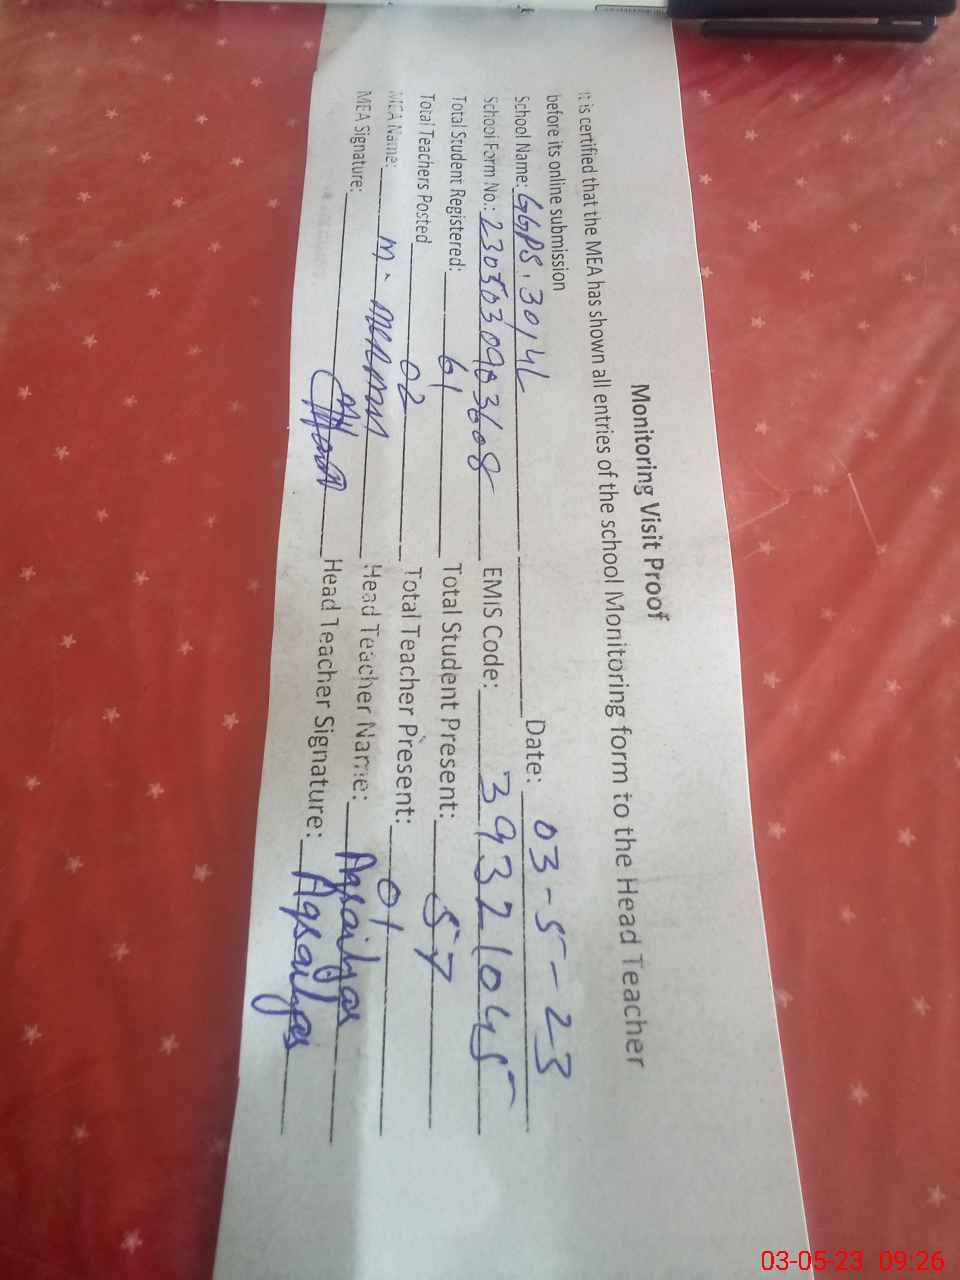 Monitoring Visit Proof
It is certified that the MEA has shown all entries of the school Monitoring form to the Head Teacher
before its online submission
School Name: GGPS. 30/4L Date: 03-5-23
School Form No.: 2305030903608 EMIS Code: 39321045
Total Student Registered: 61 Total Student Present: 57
Total Teachers Posted 02 Total Teacher Present: 01
MEA Name: M. Head Teacher Name: Aqsailyas
MEA Signature: Head Teacher Signature: Aqsailyas
03-05-23 09:26